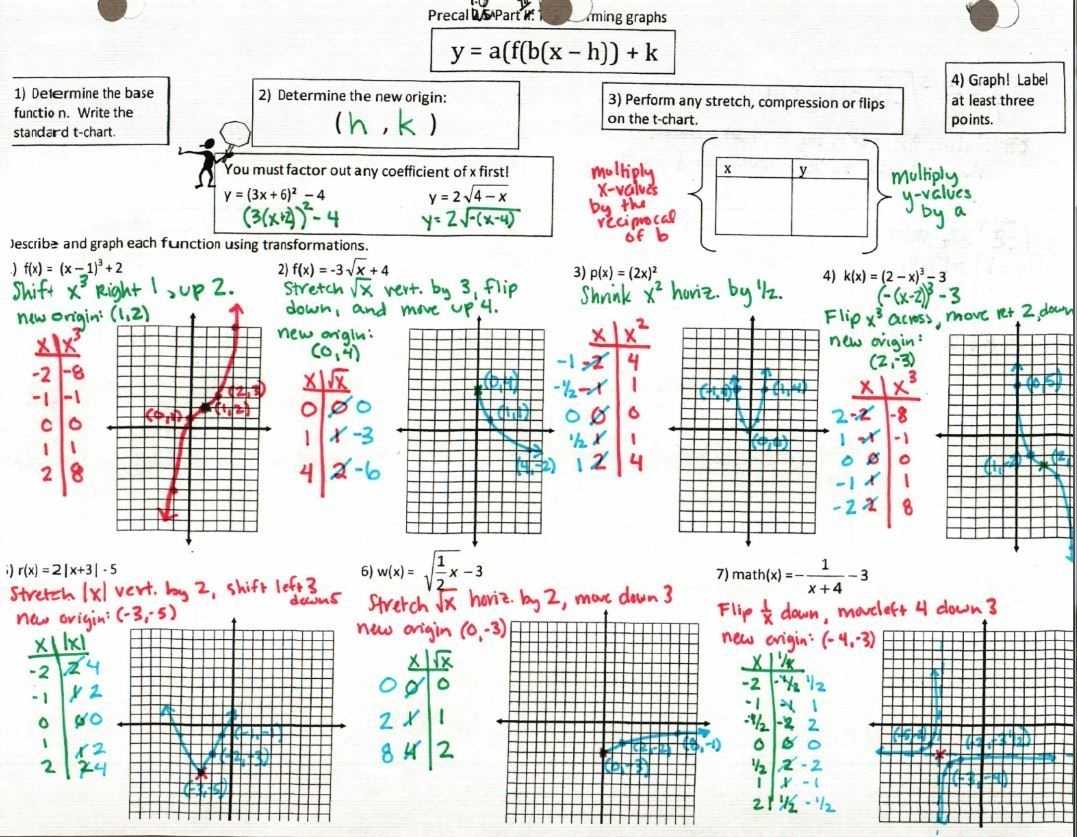 Precal 2.5 Part
ming graphs
y = a(f(b(x – h)) + k
1) Determine the base
function. Write the
standard t-chart.
2) Determine the new origin:
(h , k)
3) Perform any stretch, compression or flips
on the t-chart.
4) Graph! Label
at least three
points.
You must factor out any coefficient of x first!
y = (3x + 6)² – 4
y = 2√4 – x
(3(x+2))² - 4
y = 2√-(x-4)
multiply
x-values
by the
reciprocal
of b
x y
multiply
y-values
by a
Describe and graph each function using transformations.
) f(x) = (x – 1)³ + 2
Shift x³ Right 1, up 2.
new origin: (1,2)
x x³
-2 -8
-1 -1
0 0
1 1
2 8
(2,3)
(1,2)
2) f(x) = -3√x + 4
Stretch √x vert. by 3, flip
down, and move up 4.
new origin:
(0,4)
x √x
0 0 0
1 1 -3
4 2 -6
(0,4)
(1,1)
(4,-2)
3) p(x) = (2x)²
Shrink x² horiz. by 1/2.
x x²
-1 -2 4
-1/2 -1 1
0 0 0
1/2 1 1
1 2 4
(-1,4)
(1,4)
(0,0)
4) k(x) = (2 – x)³ – 3
(-(x-2))³ - 3
Flip x³ across, move rt 2, down
new origin:
(2,-3)
x x³
2 -2 -8
1 -1 -1
0 0 0
-1 1 1
-2 2 8
(0,5)
(1,-2)
(2,
) r(x) = 2|x+3| - 5
Stretch |x| vert. by 2, shift left 3
down 5
new origin: (-3,-5)
x |x|
-2 2 4
-1 1 2
0 0 0
1 1 2
2 2 4
(-1,-1)
(-2,-3)
(-3,-5)
6) w(x) = √1/2 x – 3
Stretch √x horiz. by 2, move down 3
new origin (0,-3)
x √x
0 0 0
2 1 1
8 4 2
(0,-3)
(2,-2)
(8,-1)
7) math(x) = – 1/x + 4 – 3
Flip 1/x down, move left 4 down 3
new origin: (-4,-3)
x 1/x
-2 -1/2 1/2
-1 -1 1
-1/2 -2 2
0 0 0
1/2 2 -2
1 1 -1
2 1/2 -1/2
(-3,-4)